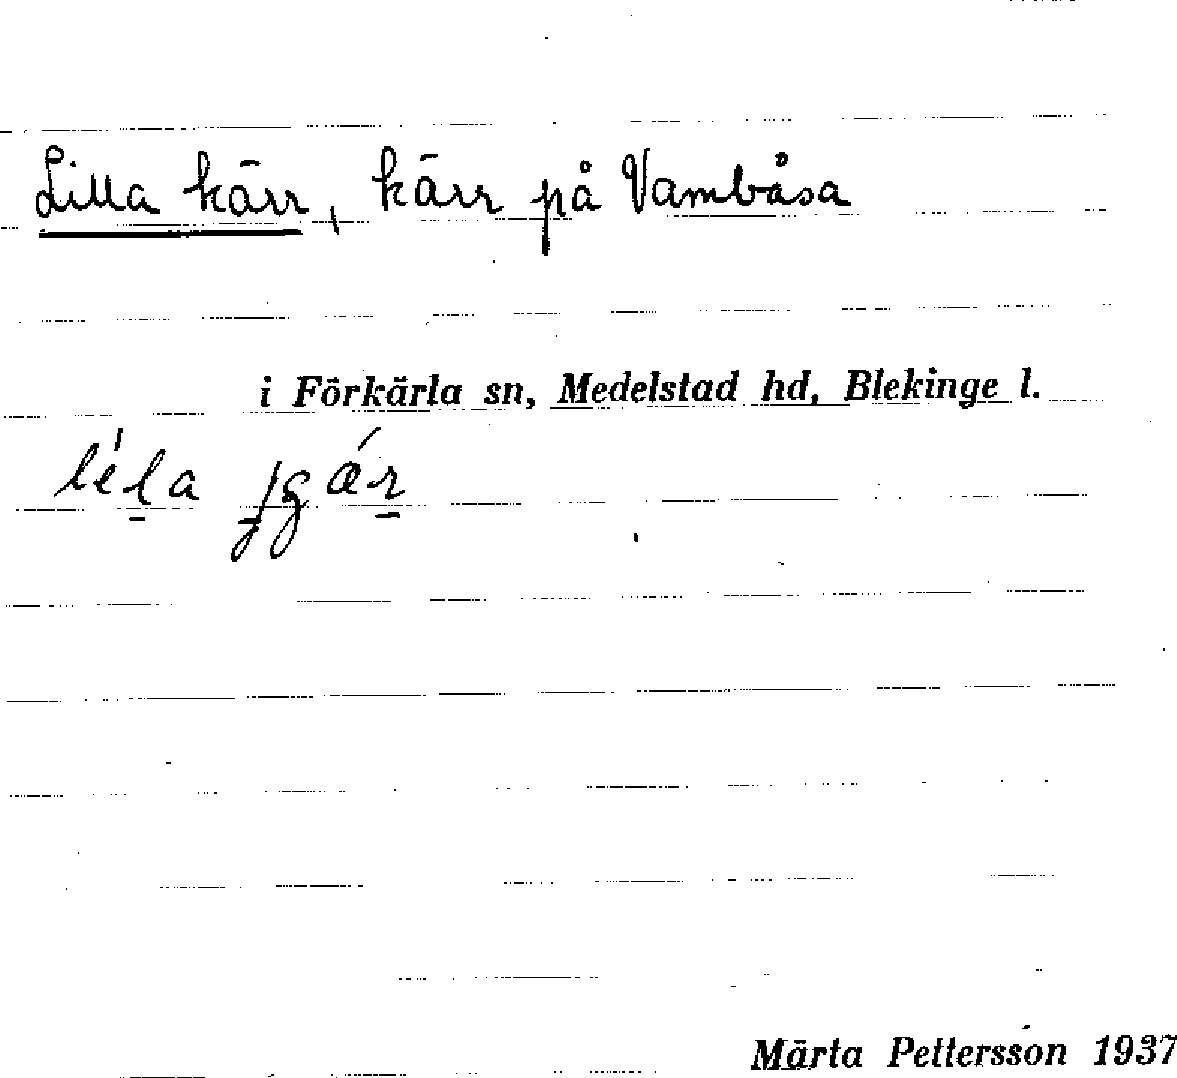 Lilla kärr, kärr på Vambåsa
i Förkärla sn, Medelstad hd, Blekinge l.
Märta Pettersson 1937